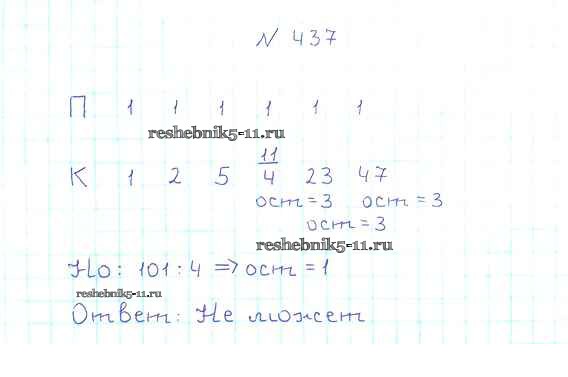 № 437
П 1 1 1 1 1 1
reshebnik5-11.ru
11
К 1 2 5 4 23 47
ост = 3 ост = 3
ост = 3
reshebnik5-11.ru
Но: 101 : 4 ⇒ ост = 1
reshebnik5-11.ru
Ответ: Не может